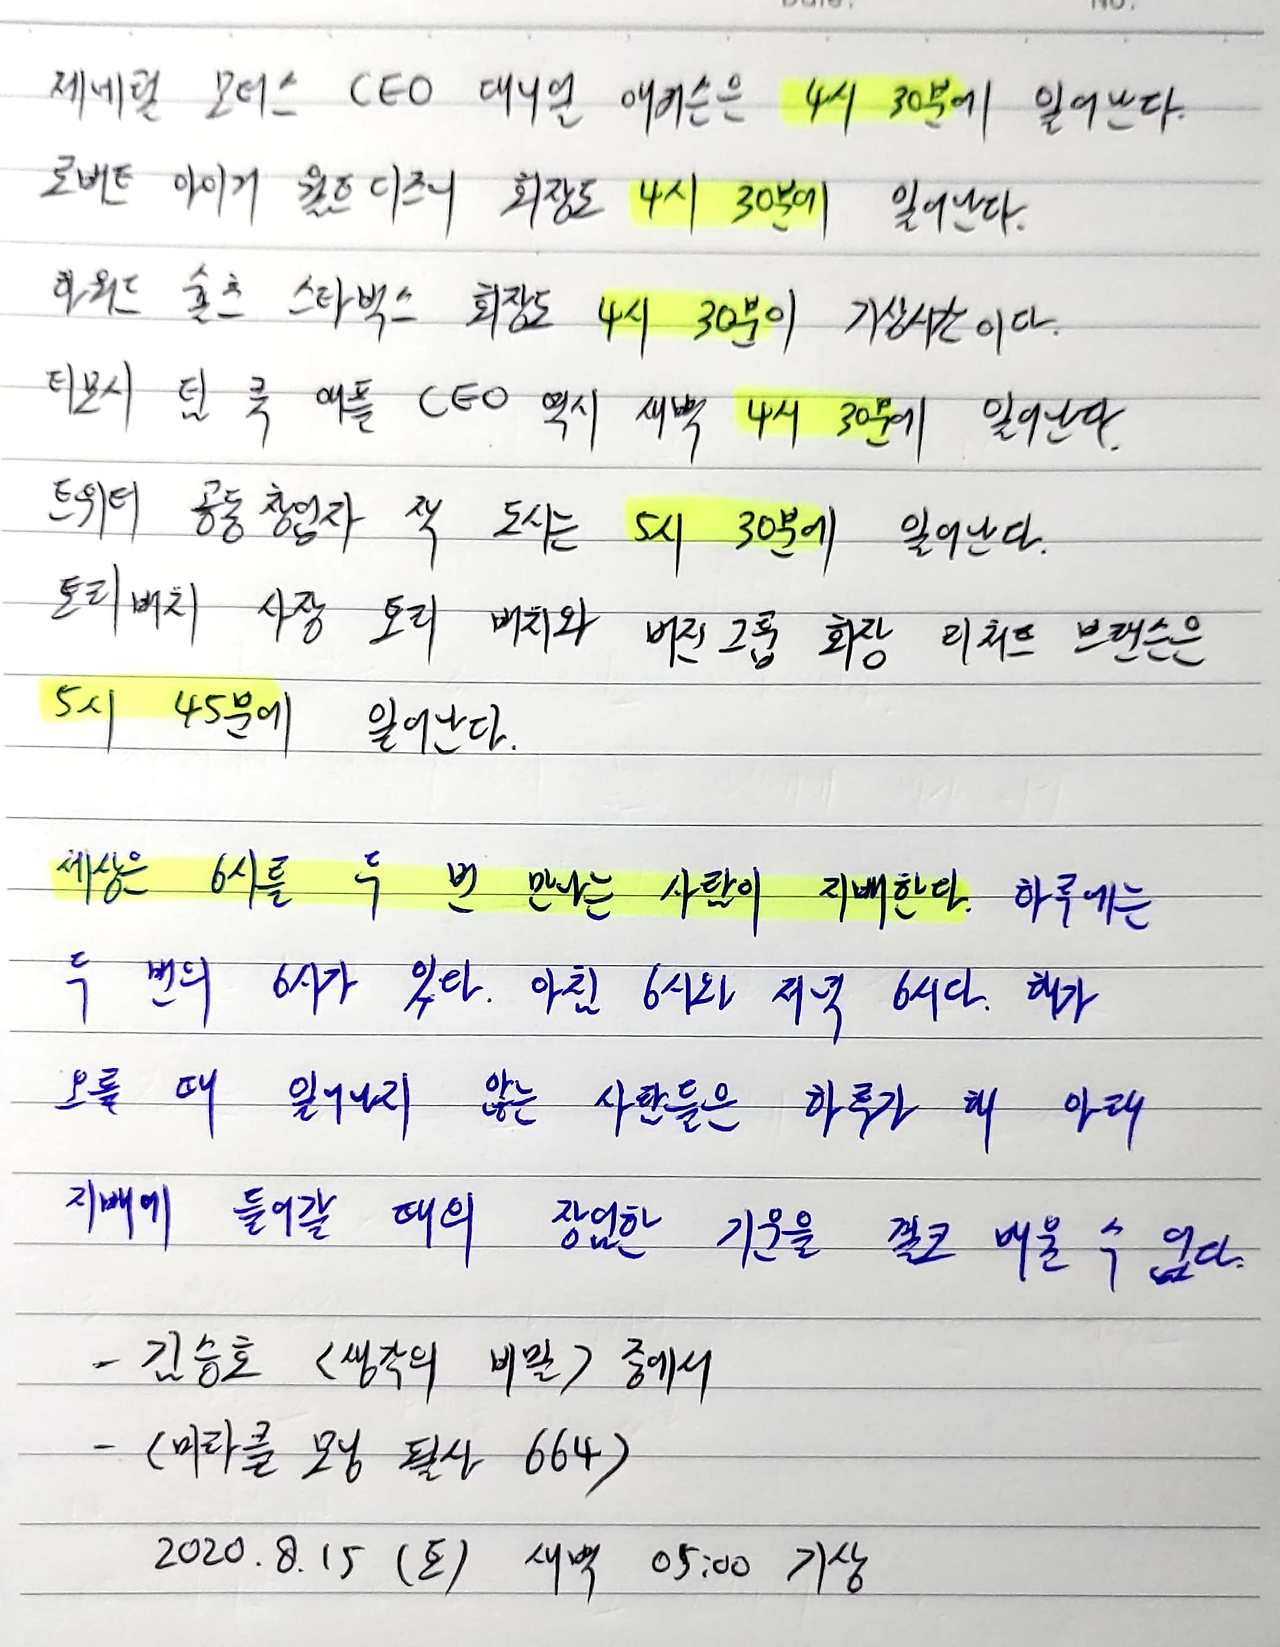 Date.
No.
제네럴 모터스 CEO 대니얼 애커슨은 4시 30분에 일어난다.
로버트 아이거 월트디즈니 회장도 4시 30분에 일어난다.
하워드 슐츠 스타벅스 회장도 4시 30분이 기상시간이다.
티모시 팀 쿡 애플 CEO 역시 새벽 4시 30분에 일어난다.
트위터 공동창업자 잭 도시는 5시 30분에 일어난다.
토리버치 사장 토리 버치와 버진그룹 회장 리처드 브랜슨은
5시 45분에 일어난다.
세상은 6시를 두 번 만나는 사람이 지배한다. 하루에는
두 번의 6시가 있다. 아침 6시와 저녁 6시다. 해가
오를 때 일어나지 않는 사람들은 하루가 해 아래
지배에 들어갈 때의 장엄한 기운을 결코 배울 수 없다.
- 김승호 <생각의 비밀> 중에서
- (미라클 모닝 필사 664)
2020.8.15 (토) 새벽 05:00 기상